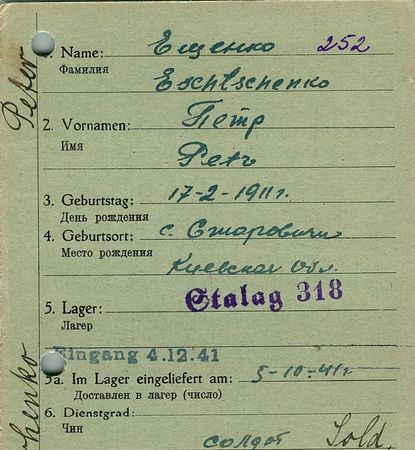 1. Name: Ещенко 252
Фамилия Eschtschenko
2. Vornamen: Пётр
Имя Petr
3. Geburtstag: 17-2-1911г.
День рождения
4. Geburtsort: с. Старовичи
Место рождения
Киевская обл.
5. Lager: Stalag 318
Лагер
Eingang 4.12.41
5a. Im Lager eingeliefert am: 5-10-41г.
Доставлен в лагер (число)
6. Dienstgrad:
Чин
солдат Sold.
Peter